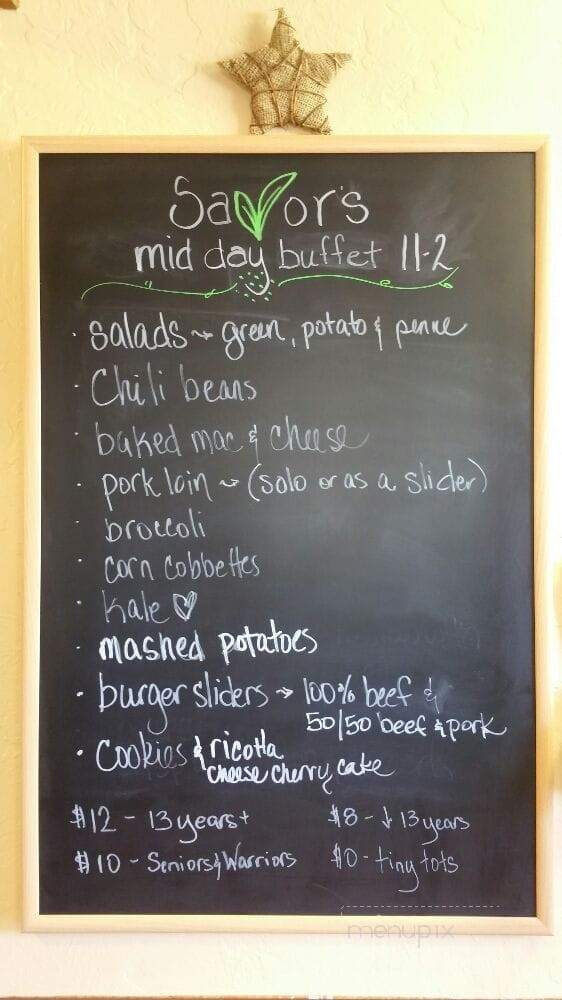 Savor's
mid day buffet 11-2
· salads → green, potato & penne
· Chili beans
· baked mac & cheese
· pork loin → (solo or as a slider)
· broccoli
· corn cobbettes
· Kale ♡
· mashed potatoes
· burger sliders → 100% beef &
50/50 beef & pork
· Cookies & ricotta
cheese cherry cake
$12 - 13 years+
$8 - ↓ 13 years
$10 - Seniors & Warriors
$0 - tiny tots
menupix